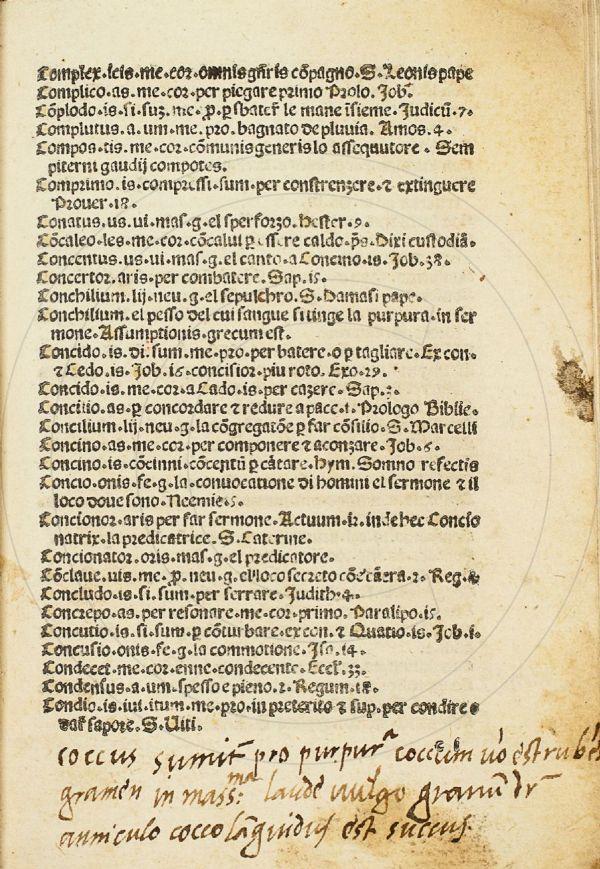 Complex.icis.me.cor.omnis gn̄ris cōpagno.S.Leonis pape
Complico.as.me.cor.per piegare primo Prolo.Job.
Cōplodo.is.si.suʒ.me.ꝓ.ꝑ sbater̄ le mane īsieme.Judicū.7.
Complutus.a.um.me.pro.bagnato de pluuia. Amos.4.
Compos.tis.me.cor.cōmunis generis lo assequutore. Sem
piterni gaudij compotes.
Comprimo.is.compressi.sum.per constrenzere.⁊ extinguere
Prouer.18.
Conatus.us.ui.mas.g.el sperforzo.Hester.9.
Cōcaleo.les.me.cor.cōcalui ꝑ essere caldo.ps̄.Dixi custodiā.
Concentus.us.ui.mas.g.el canto.a Concino.is.Job.38.
Concertor.aris.per combatere.Sap.15.
Conchilium.lij.neu.g.el sepulchro.S.Damasi pape.
Conchilium.el pesso del cui sangue si tinge la purpura.in ser
mone.Assumptionis.grecum est.
Concido.is.di.sum.me.pro.per batere.o ꝑ tagliare.Ex con.
⁊ Cedo.is.Job.16.concisior.piu roto.Exo.29.
Concido.is.me.cor.a Cado.is.per cazere.Sap.
Concilio.as.ꝑ concordare ⁊ redure a pace.1.Prologo Biblie.
Concilium.lij.neu.g.la cōgregatōe ꝑ far cōsilio.S.Marcelli
Concino.as.me.cor.per componere ⁊ aconzare.Job.6.
Concino.is.cōcinni.cōcentū ꝑ cātare.hym.Somno refectis
Concio.onis.fe.g.la conuocatione di homini el sermone ⁊ il
loco doue sono.Neemie.5.
Concionor.aris per far sermone.Actuum.12.inde hec Concio
natrix.la predicatrice.S.Caterine.
Concionator.oris.mas.g.el predicatore.
Cōclaue.uis.me.ꝓ.neu.g.el loco secreto cōe cāera.2.Reg.
Concludo.is.si.sum.per serrare.Judith.4.
Concrepo.as.per resonare.me.cor.primo.Paralipo.15.
Concutio.is.si.sum.ꝑ cōturbare.ex con.⁊ Quatio.is.Job.1.
Concusio.onis.fe.g.la commotione.Isa.14.
Condecet.me.cor.enne.condecente.Eccl̄.33.
Condensus.a.um.spesso e pieno.2.Regum.18.
Condio.is.iui.itum.me.pro.in preterito ⁊ sup.per condire e
dar sapore.S.Uiti.
coccus sumit̄ pro purpura coccum uo est rub
gramen in mass. laude uulgo granū dr̄
a uniculo cocco lāguidus est succus.